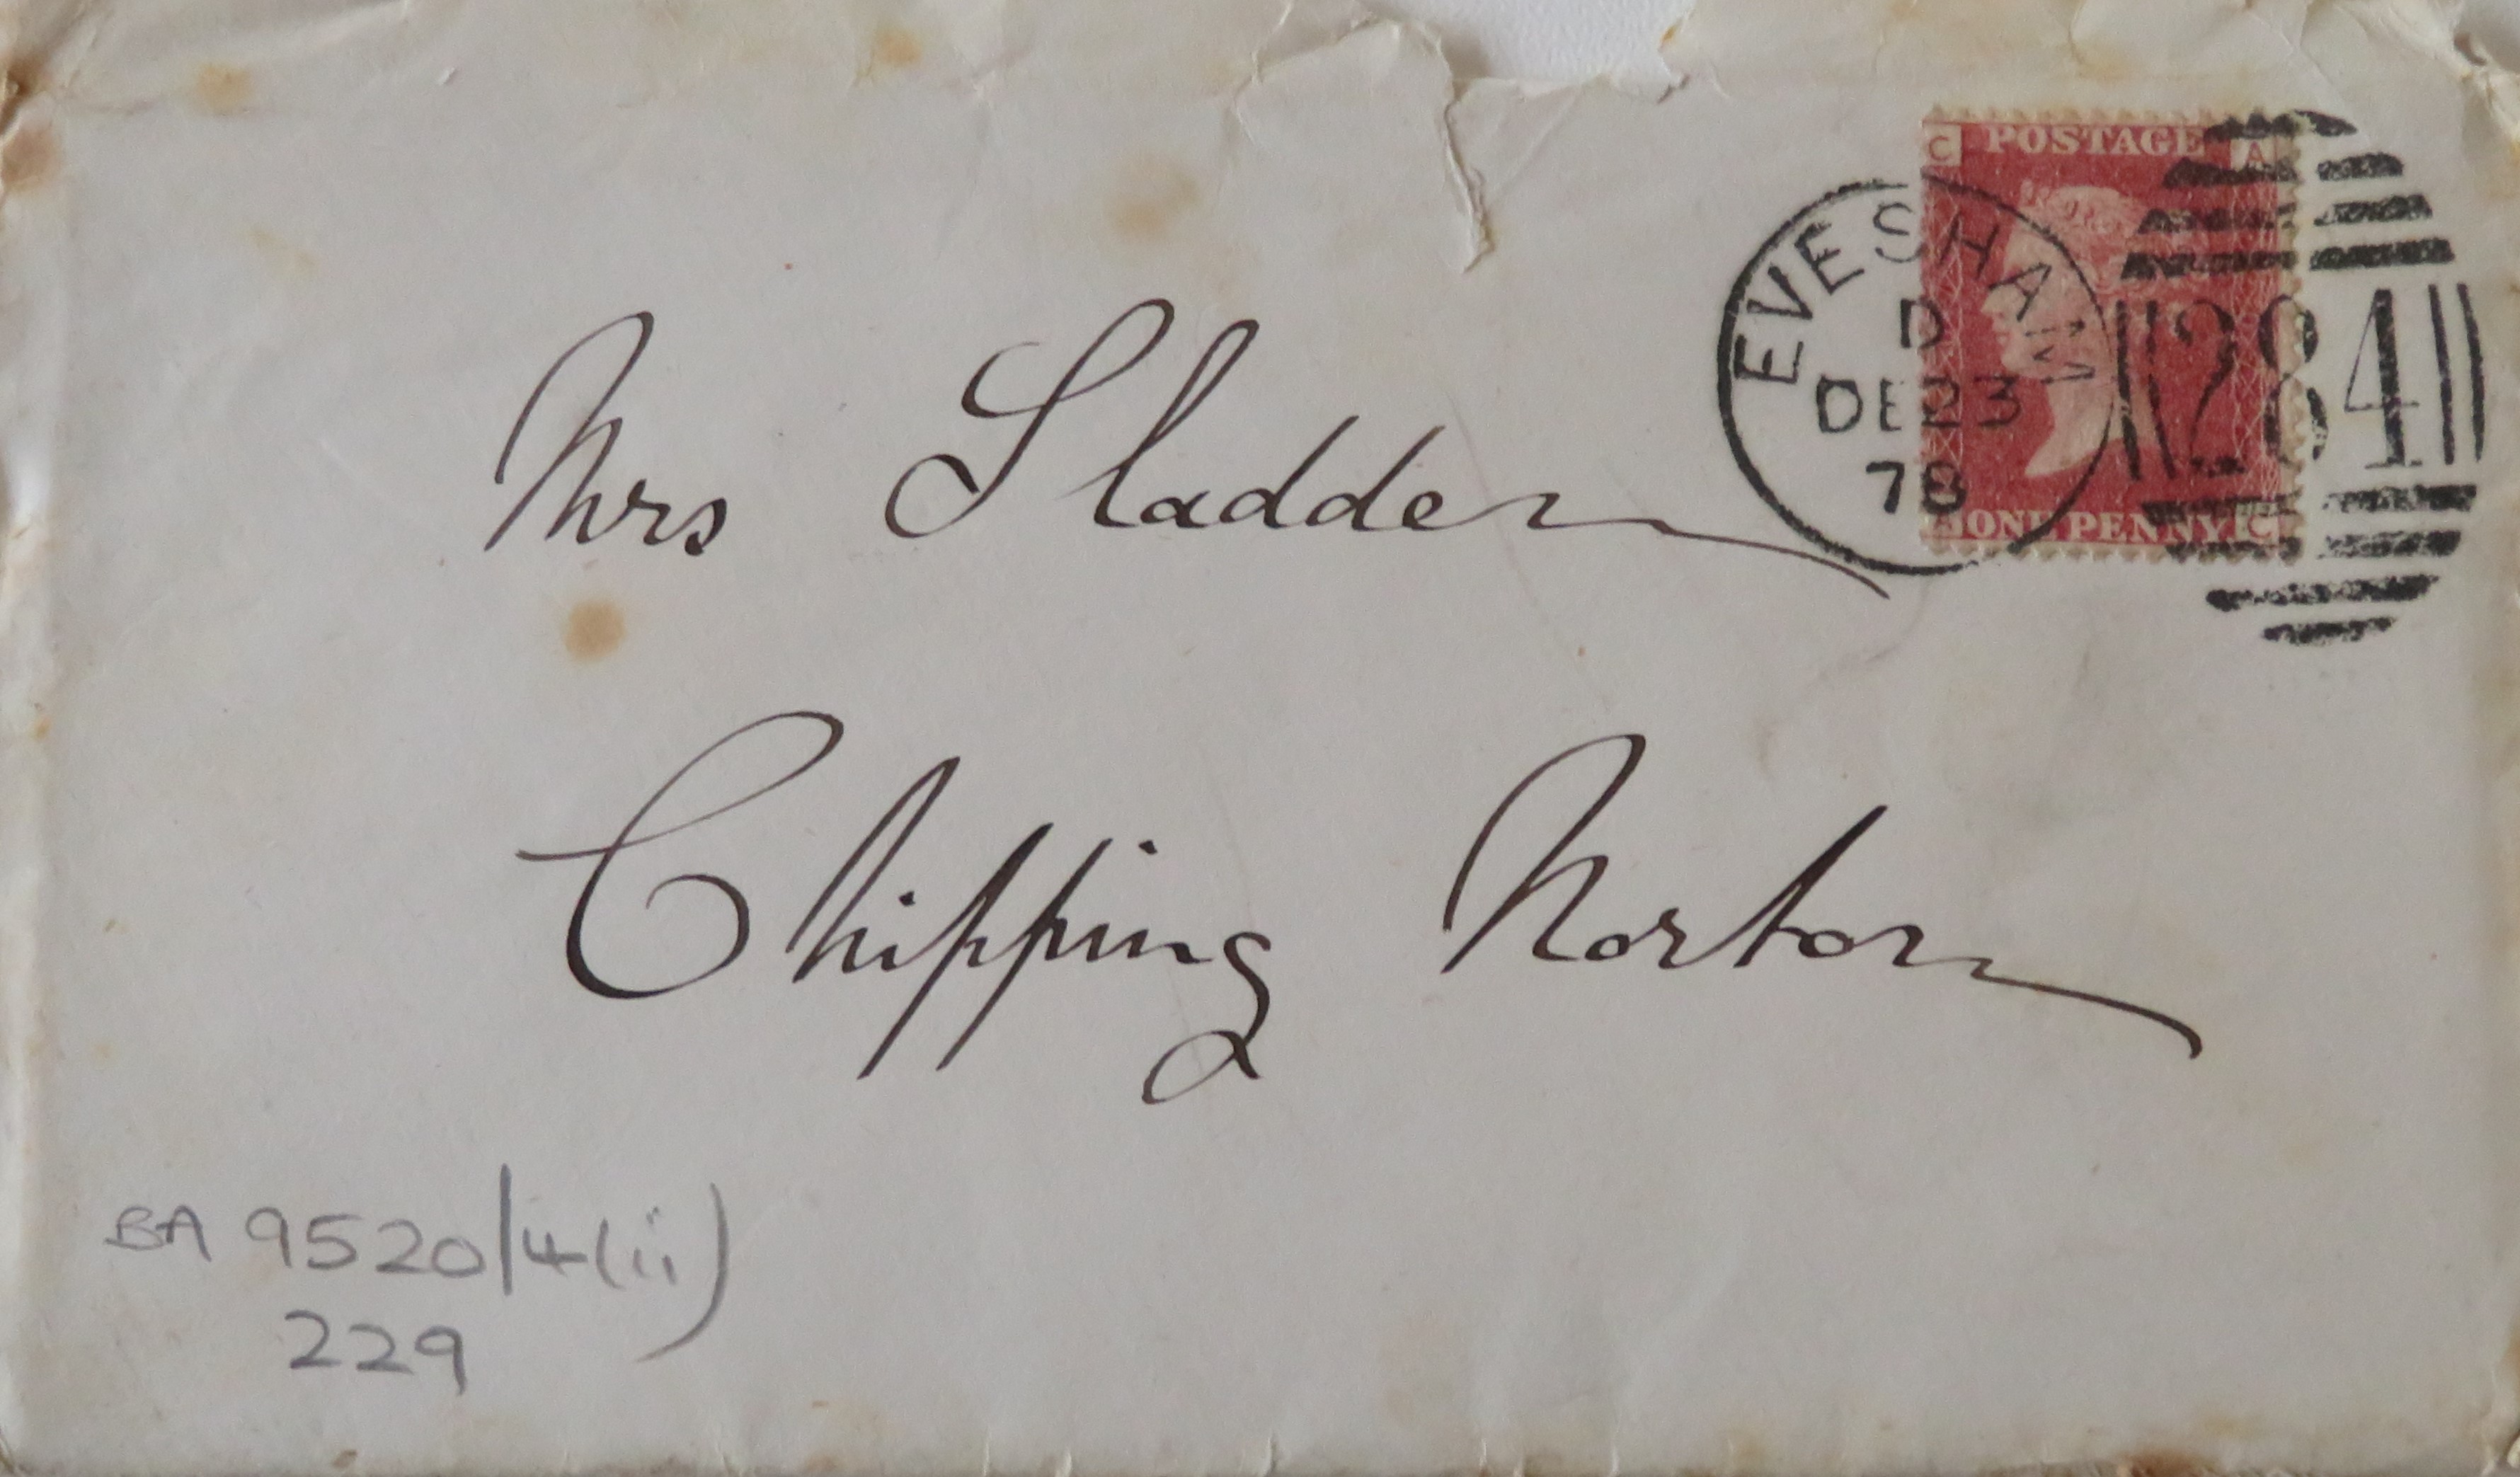 C POSTAGE A
EVESHAM
D
DE 23
78
284
ONE PENNY C
Mrs Sladden
Chipping Norton
BA 9520/4(ii)
229